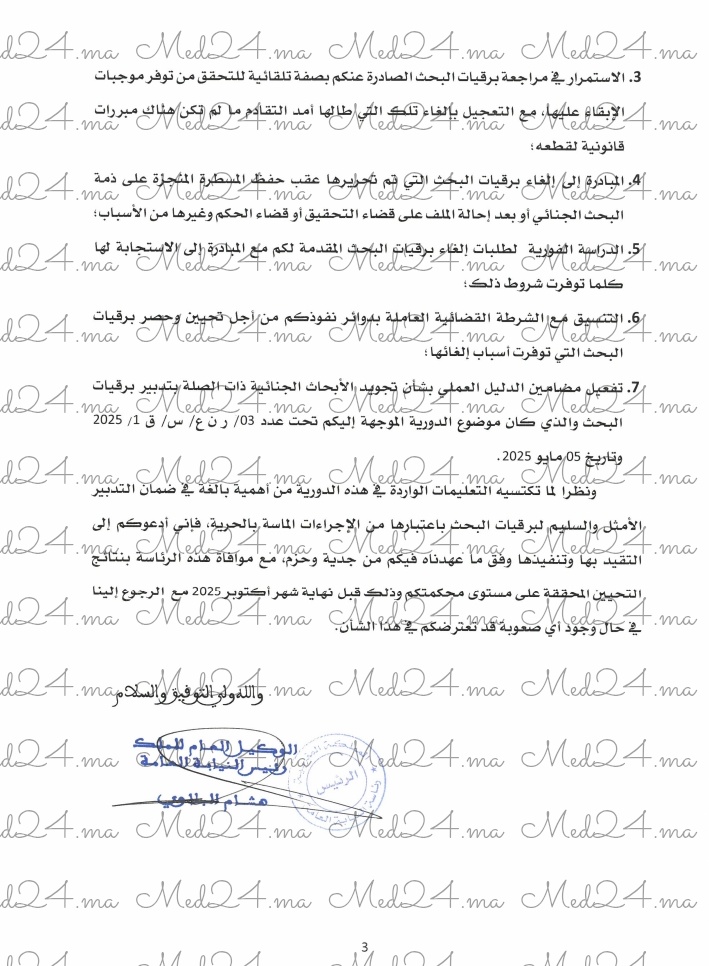 3. الاستمرار في مراجعة برقيات البحث الصادرة عنكم بصفة تلقائية للتحقق من توفر موجبات
الإبقاء عليها، مع التعجيل بإلغاء تلك التي طالها أمد التقادم ما لم تكن هناك مبررات
قانونية لقطعه؛
4. المبادرة إلى إلغاء برقيات البحث التي تم تحريرها عقب حفظ المسطرة المنجزة على ذمة
البحث الجنائي أو بعد إحالة الملف على قضاء التحقيق أو قضاء الحكم وغيرها من الأسباب؛
5. الدراسة الفورية لطلبات إلغاء برقيات البحث المقدمة لكم مع المبادرة إلى الاستجابة لها
كلما توفرت شروط ذلك؛
6. التنسيق مع الشرطة القضائية العاملة بدوائر نفوذكم من أجل تحيين وحصر برقيات
البحث التي توفرت أسباب إلغائها؛
7. تفعيل مضامين الدليل العملي بشأن تجويد الأبحاث الجنائية ذات الصلة بتدبير برقيات
البحث والذي كان موضوع الدورية الموجهة إليكم تحت عدد 03/ ر ن ع/ س/ ق 1/ 2025
وتاريخ 05 مايو 2025.
ونظرا لما تكتسيه التعليمات الواردة في هذه الدورية من أهمية بالغة في ضمان التدبير
الأمثل والسليم لبرقيات البحث باعتبارها من الإجراءات الماسة بالحرية، فإني أدعوكم إلى
التقيد بها وتنفيذها وفق ما عهدناه فيكم من جدية وحزم، مع موافاة هذه الرئاسة بنتائج
التحيين المحققة على مستوى محكمتكم وذلك قبل نهاية شهر أكتوبر 2025 مع الرجوع إلينا
في حال وجود أي صعوبة قد تعترضكم في هذا الشأن.
والله ولي التوفيق والسلام
الوكيل العام للملك
رئيس النيابة العامة
هشام البلاوي
الرئيس
Med24.ma
3